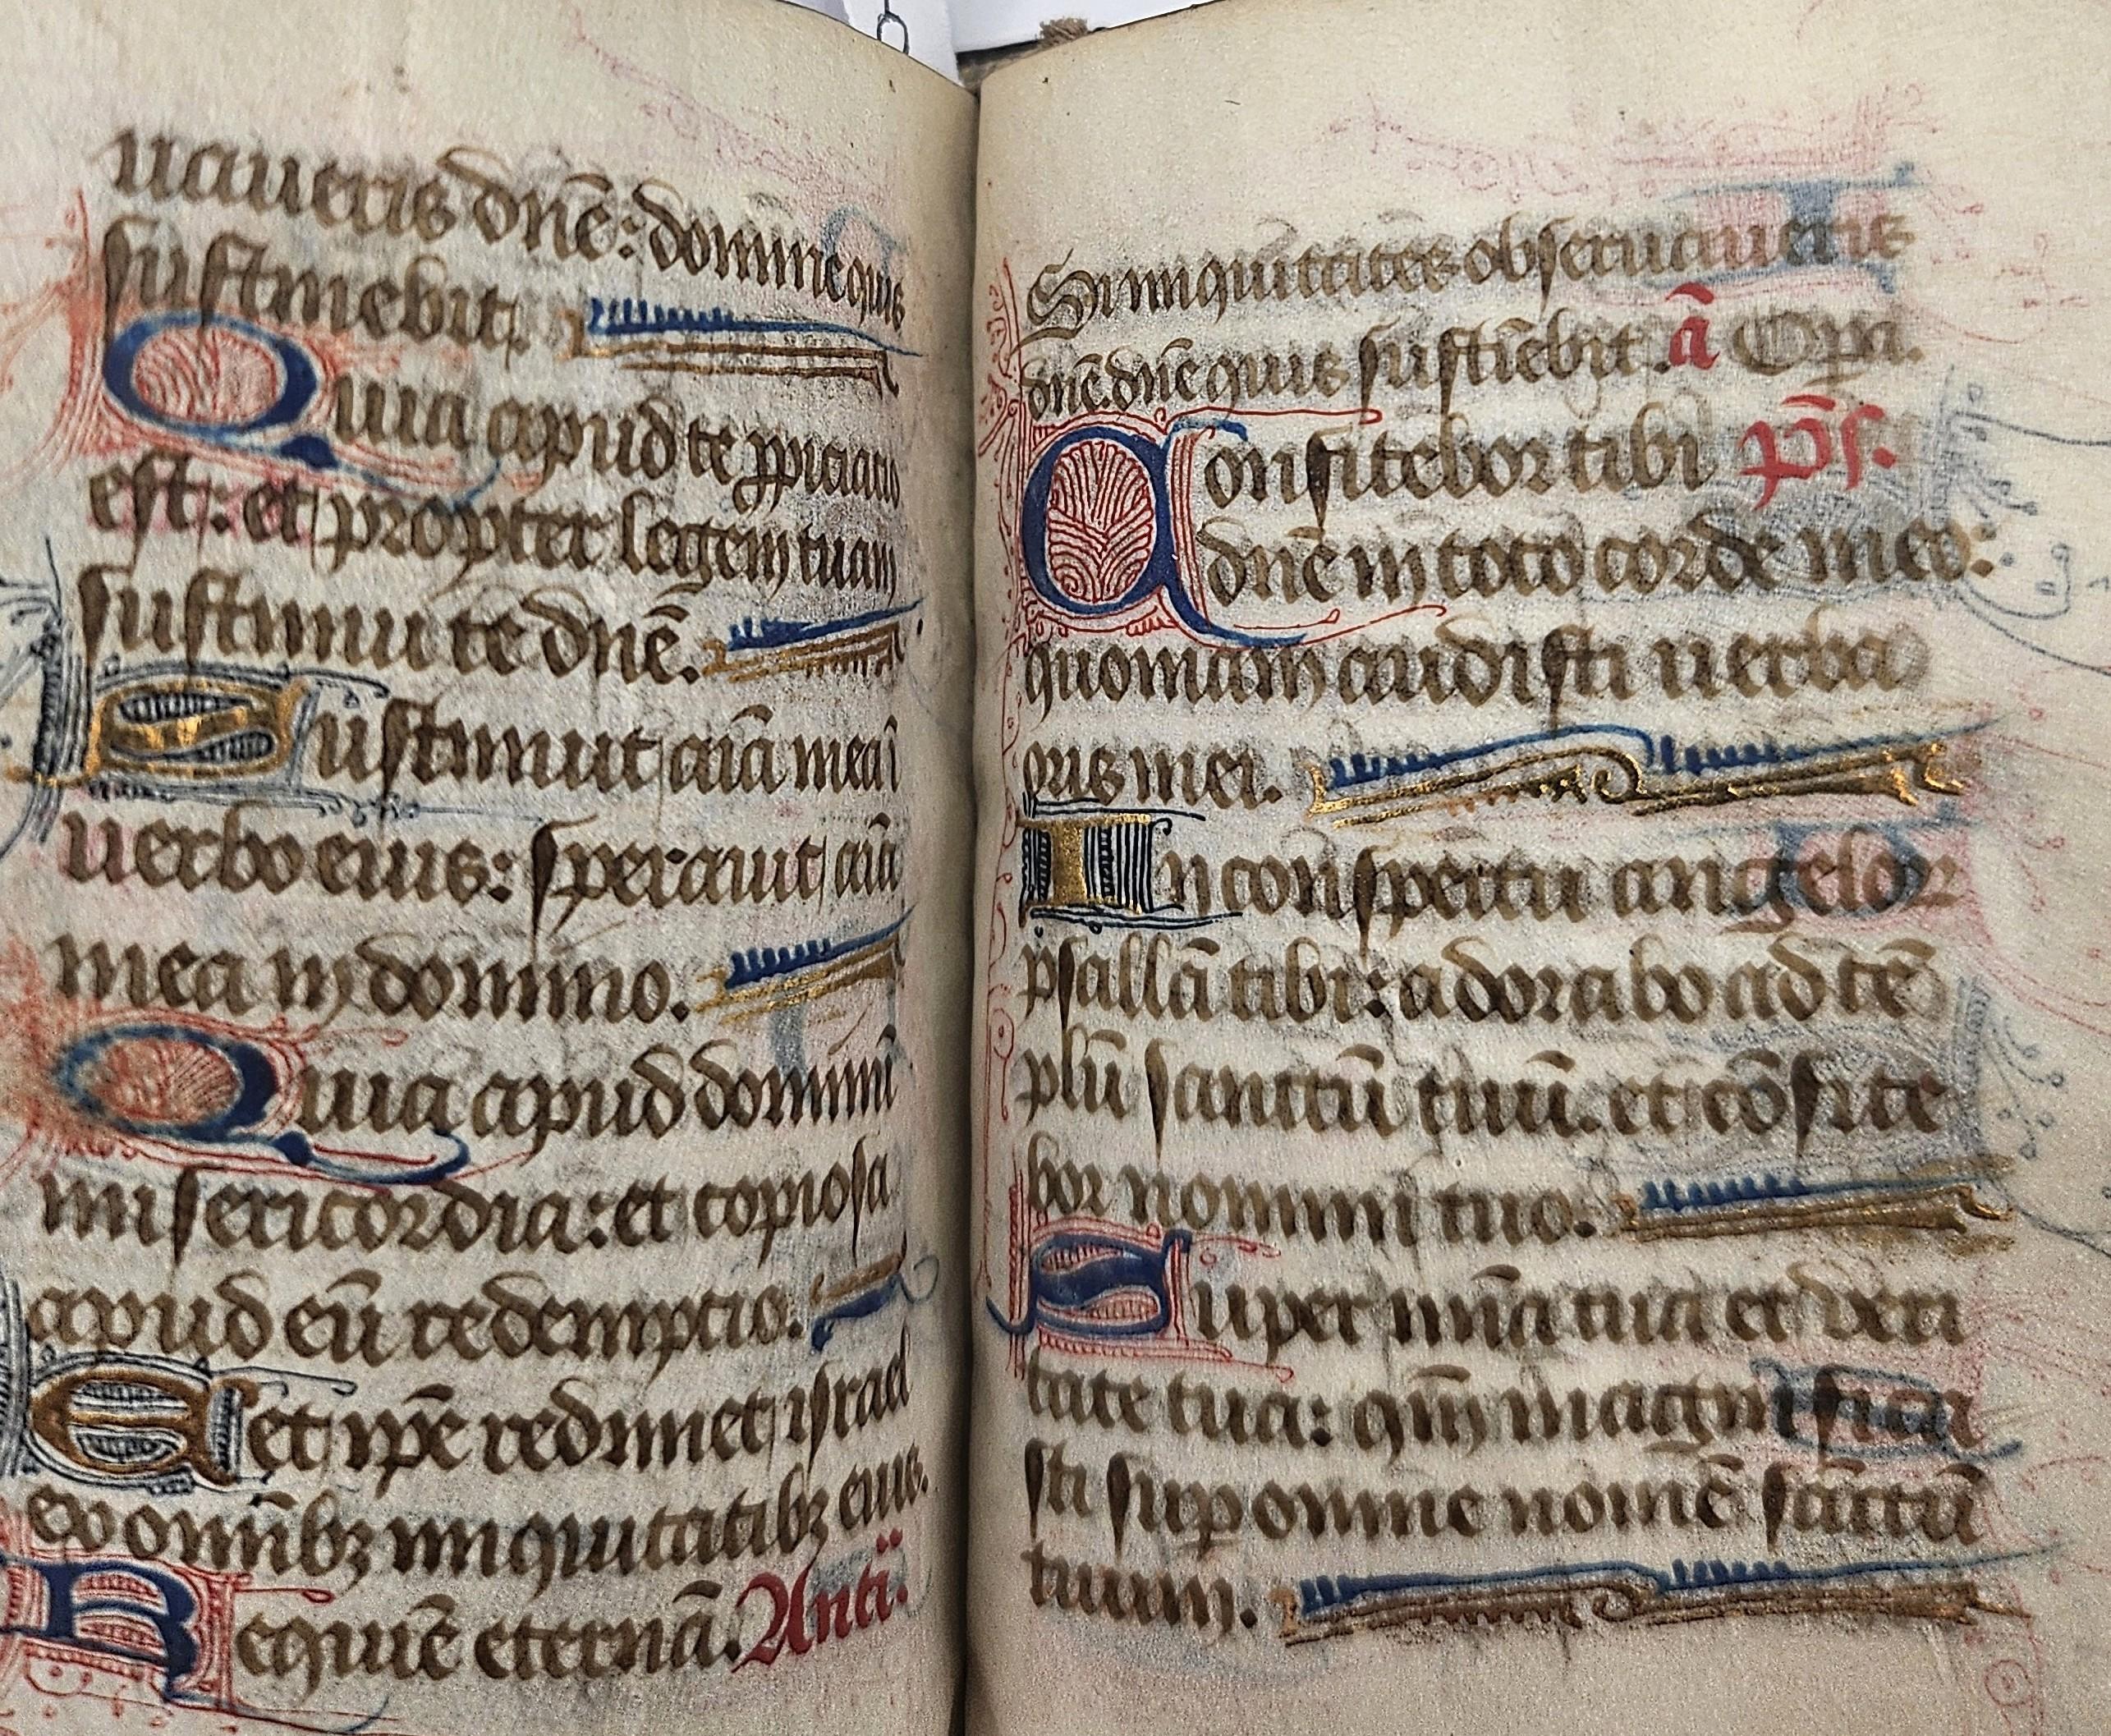 uaueris dnē: domine quis
sustinebit.
Quia apud te ꝓpiciatio
est: et propter legem tuam
sustinui te dnē.
Sustinuit aīa mea ī
uerbo eius: sperauit aīa
mea in domino.
Quia apud dominū
misericordia: et copiosa
apud eū redemptio.
Et ipē redimet israel
ex omībꝫ iniquitatibꝫ eius.
Requiē eternā. Antī.
Si iniquitates obseruaueris
dnē dnē quis sustīebit. ā Opa.
Confitebor tibi p̄s.
dnē in toto corde meo:
quoniam audisti uerba
oris mei.
In conspectu angeloꝝ
psallā tibi: adorabo ad tē
plū sanctū tuū. et cōfite
bor nomini tuo.
Super mīa tua et veri
tate tua: qm̄ magnifica
sti suꝑ omne nomē sāctū
tuum.